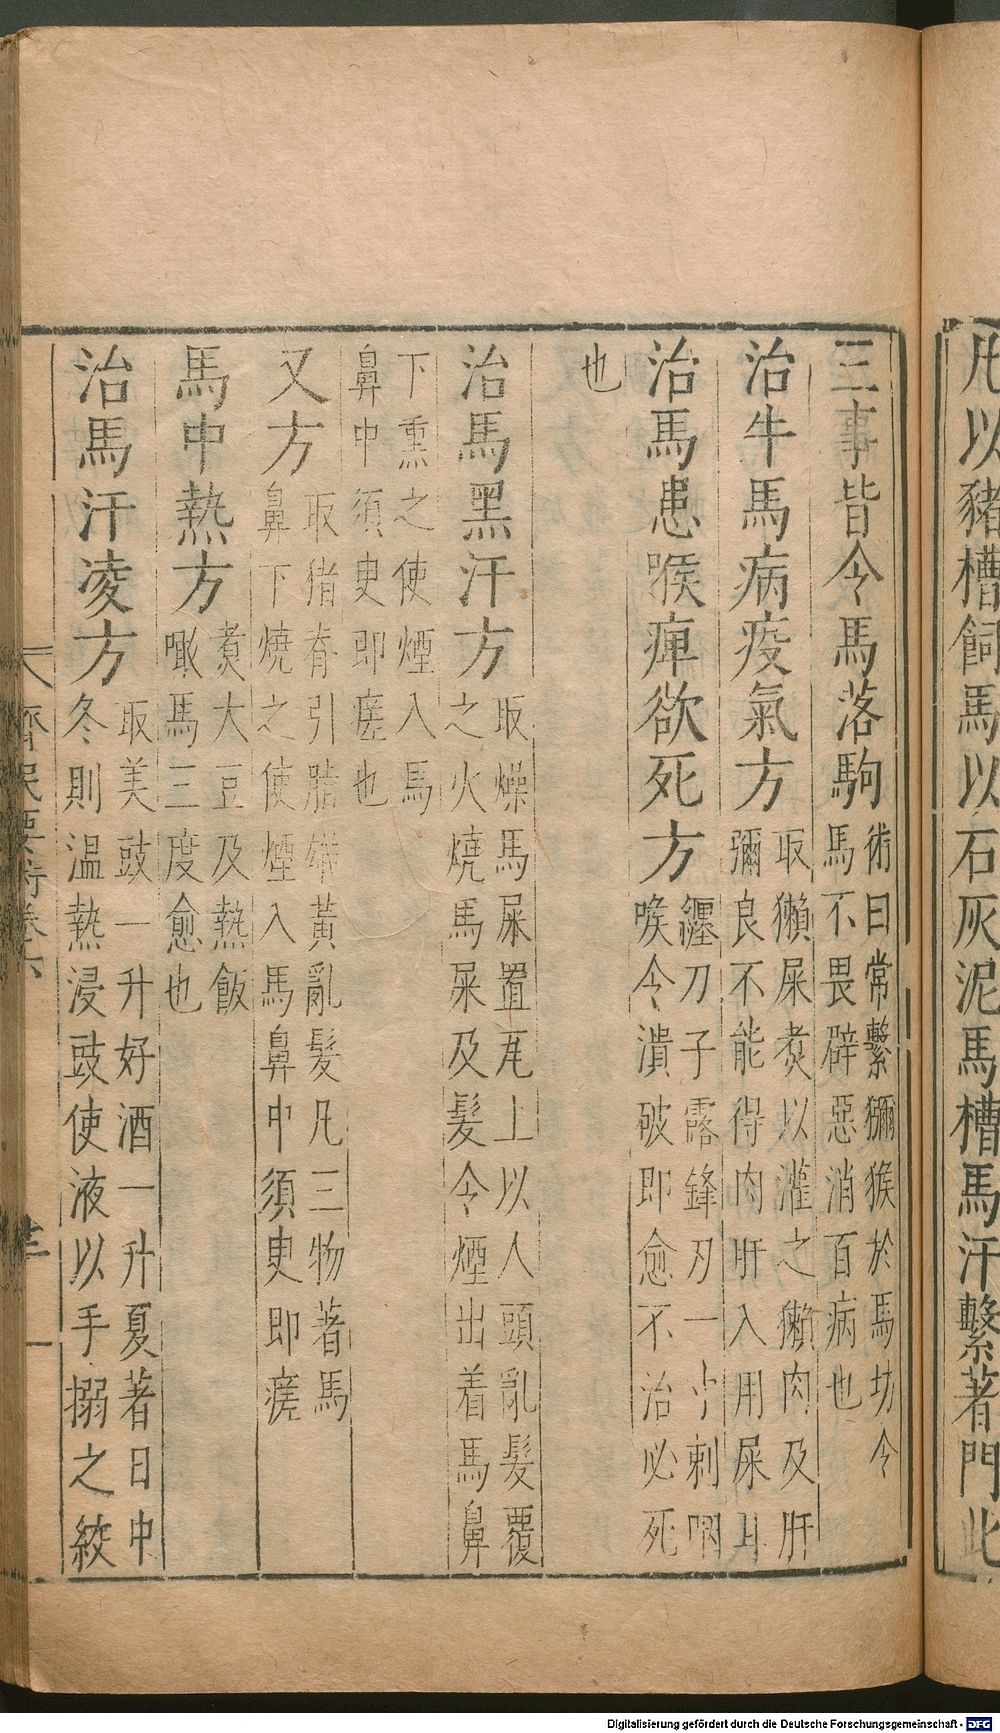 凡以豬槽飼馬以石灰泥馬槽馬汗繫著門此
三事皆令馬落駒
術曰常繫獼猴於馬坊令
馬不畏辟惡消百病也
治牛馬病疫氣方
取獺屎煑以灌之獺肉及肝
彌良不能得肉肝入用屎耳
治馬患喉痺欲死方
纒刀子露鋒刃一寸刺咽
喉令潰破即愈不治必死
也
治馬黑汗方
取燥馬屎置瓦上以人頭亂髮覆
之火燒馬屎及髮令煙出着馬鼻
下熏之使煙入馬
鼻中須臾即瘥也
又方
取猪脊引脂雄黃亂髮凡三物著馬
鼻下燒之使煙入馬鼻中須臾即瘥
馬中熱方
煑大豆及熱飯
噉馬三度愈也
治馬汗凌方
取美豉一升好酒一升夏著日中
冬則温熱浸豉使液以手搦之絞
齊民要術卷六
Digitalisierung gefördert durch die Deutsche Forschungsgemeinschaft - DFG